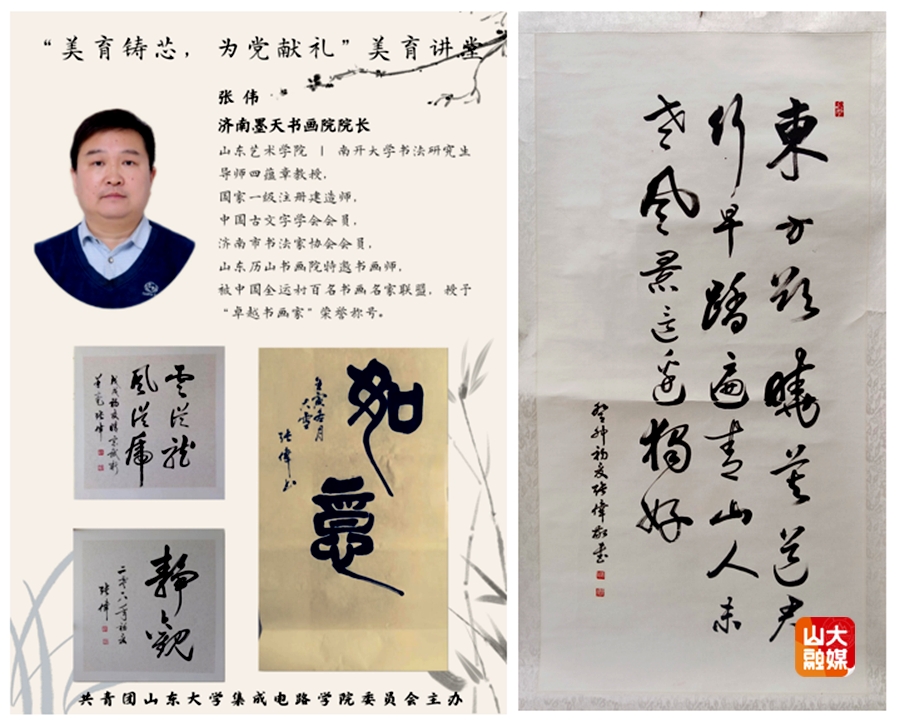 “美育铸芯，为党献礼”美育讲堂
张伟
济南墨天书画院院长
山东艺术学院 | 南开大学书法研究生
导师四蕴章教授,
国家一级注册建造师,
中国古文字学会会员,
济南市书法家协会会员,
山东历山书画院特邀书画师,
被中国全运村百名书画名家联盟, 授予
“卓越书画家”荣誉称号。
雲從龍
風從虎
張偉
如意
張偉书
靜觀
張偉
共青团山东大学集成电路学院委员会主办
東方欲曉莫道君
行早踏遍青山人未
老風景這邊獨好
癸卯初夏張偉敬書
山大
融媒